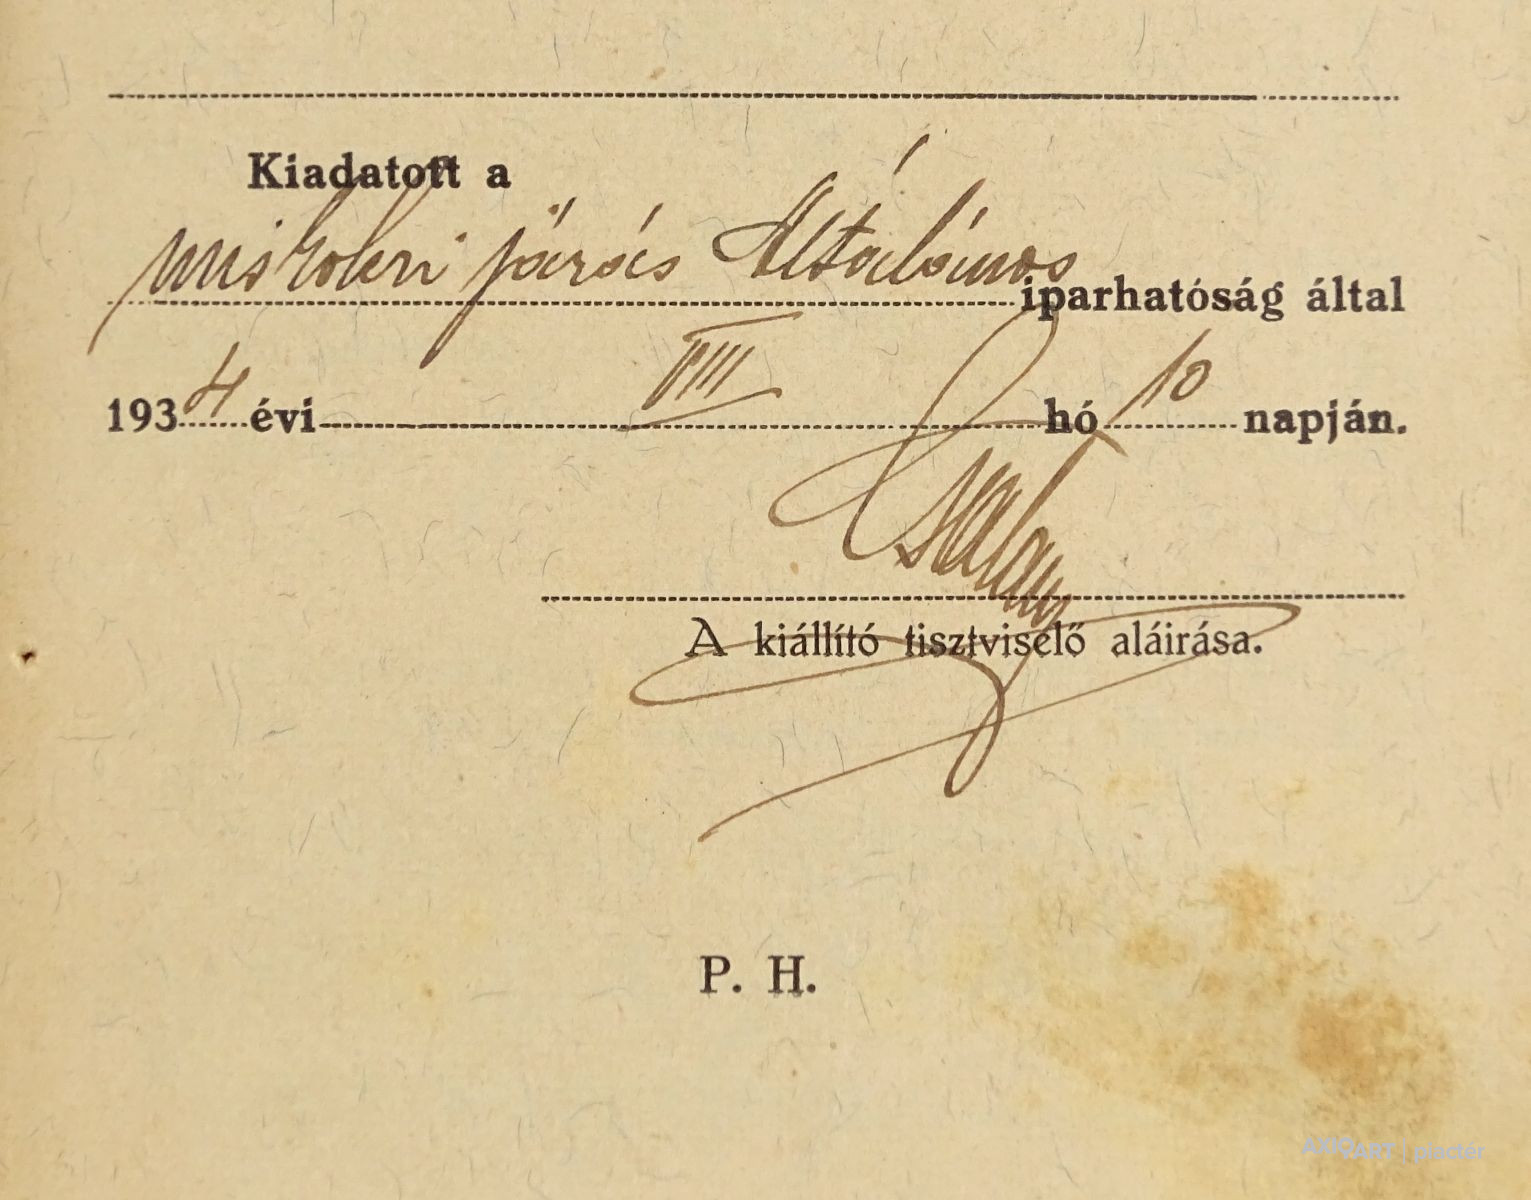 Kiadatott a
miskolczi járás Általános iparhatóság által
1934 évi VIII hó 10 napján.
A kiállító tisztviselő aláirása.
P. H.
AXIOART | piactér